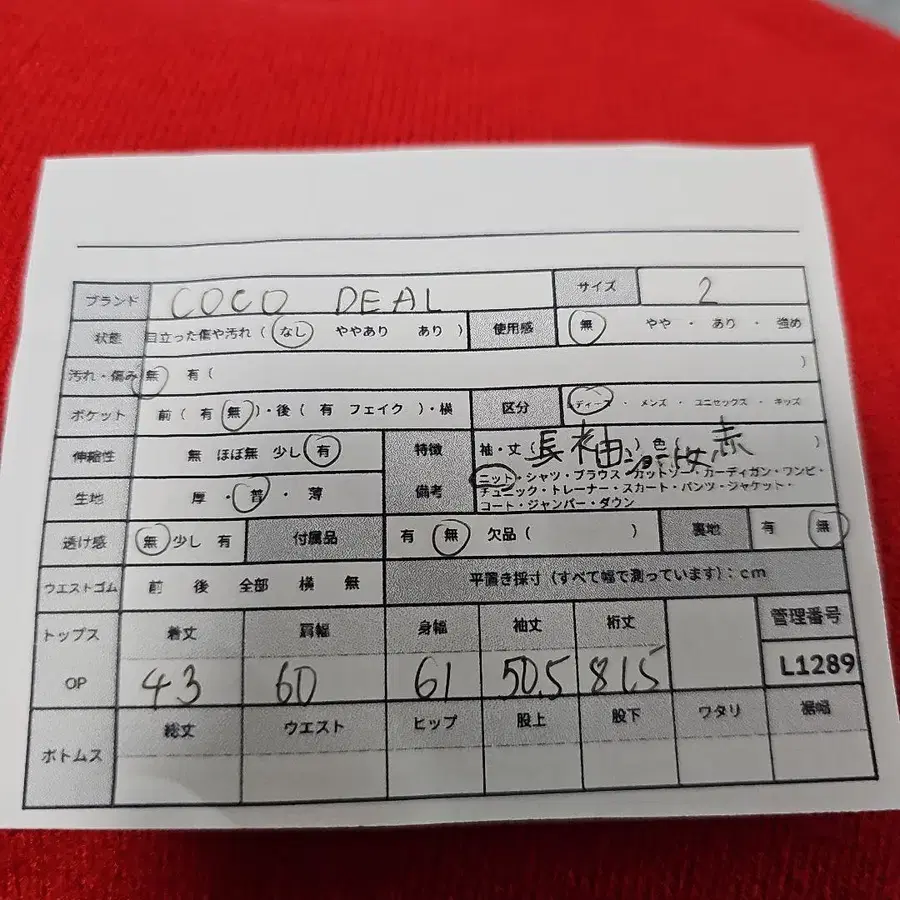 ブランド COCO DEAL サイズ 2
状態 目立った傷や汚れ ( なし ややあり あり ) 使用感 無 やや ・ あり ・ 強め
汚れ・傷み 無 有 ( )
ポケット 前 ( 有 無 )・後 ( 有 フェイク )・横 区分 ディース ・ メンズ ・ ユニセックス ・ キッズ
伸縮性 無 ほぼ無 少し 有 特徴 袖・丈 ( 長袖 ) 色 ( 赤 )
生地 厚 ・ 普 ・ 薄 備考 ニット・シャツ・ブラウス・カットソー・カーディガン・ワンピ・
チュニック・トレーナー・スカート・パンツ・ジャケット・
コート・ジャンパー・ダウン
透け感 無 少し 有 付属品 有 無 欠品 ( ) 裏地 有 無
ウエストゴム 前 後 全部 横 無 平置き採寸 (すべて幅で測っています) : cm
トップス 着丈 肩幅 身幅 袖丈 裄丈 管理番号
OP 43 60 61 50.5 81.5 L1289
ボトムス 総丈 ウエスト ヒップ 股上 股下 ワタリ 裾幅